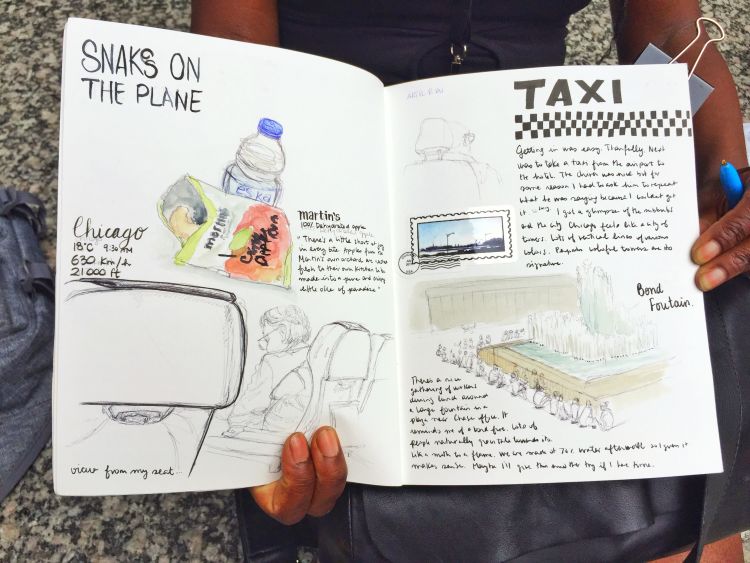 SNAKS ON
THE PLANE
Chicago
18°C 9:30 PM
630 Km/h
21 000 ft
martin's
Crispy
Apple
martin's
100% Dehydrated apple
"There's a little short of joy
in every bite. Apples from
Martin's own orchard are
fresh to their own kitchen
made into a pure and crispy
little slice of paradise."
view from my seat...
TAXI
Getting in was easy. Thankfully. Next
was to take a taxi from the airport to
the hotel. The driver was nice but for
some reason I had to ask him to repeat
what he was saying because I couldn't get
it. I got a glimpse of the suburbs
and the city. Chicago feels like a city of
towers. Lots of vertical lines of various
colors.
signature.
Bond
Foutain.
There's a nice
gathering of workers
during lunch around
a large fountain in a
plaza near Chase office. It
reminds me of a bond fire. Lots of
people naturally towards it.
Like a moth to a flame. We are made of 70% water afterall so I guess it
makes sense. Maybe I'll give this another try if I have time.